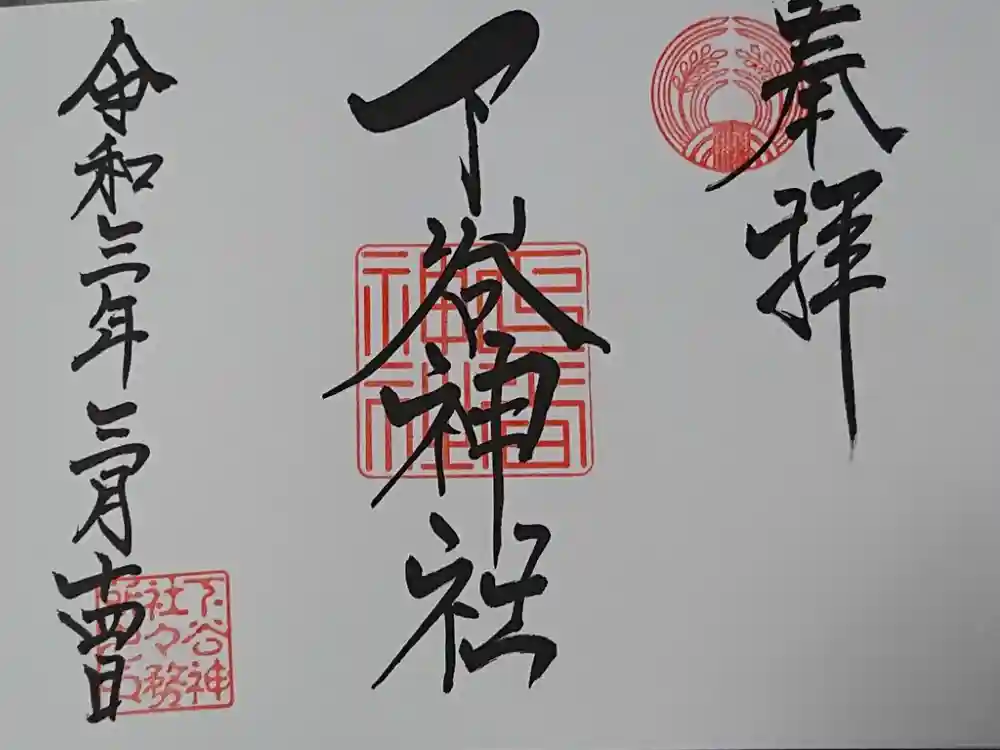 奉拝
下谷神社
令和三年三月十四日
下谷神
社々務